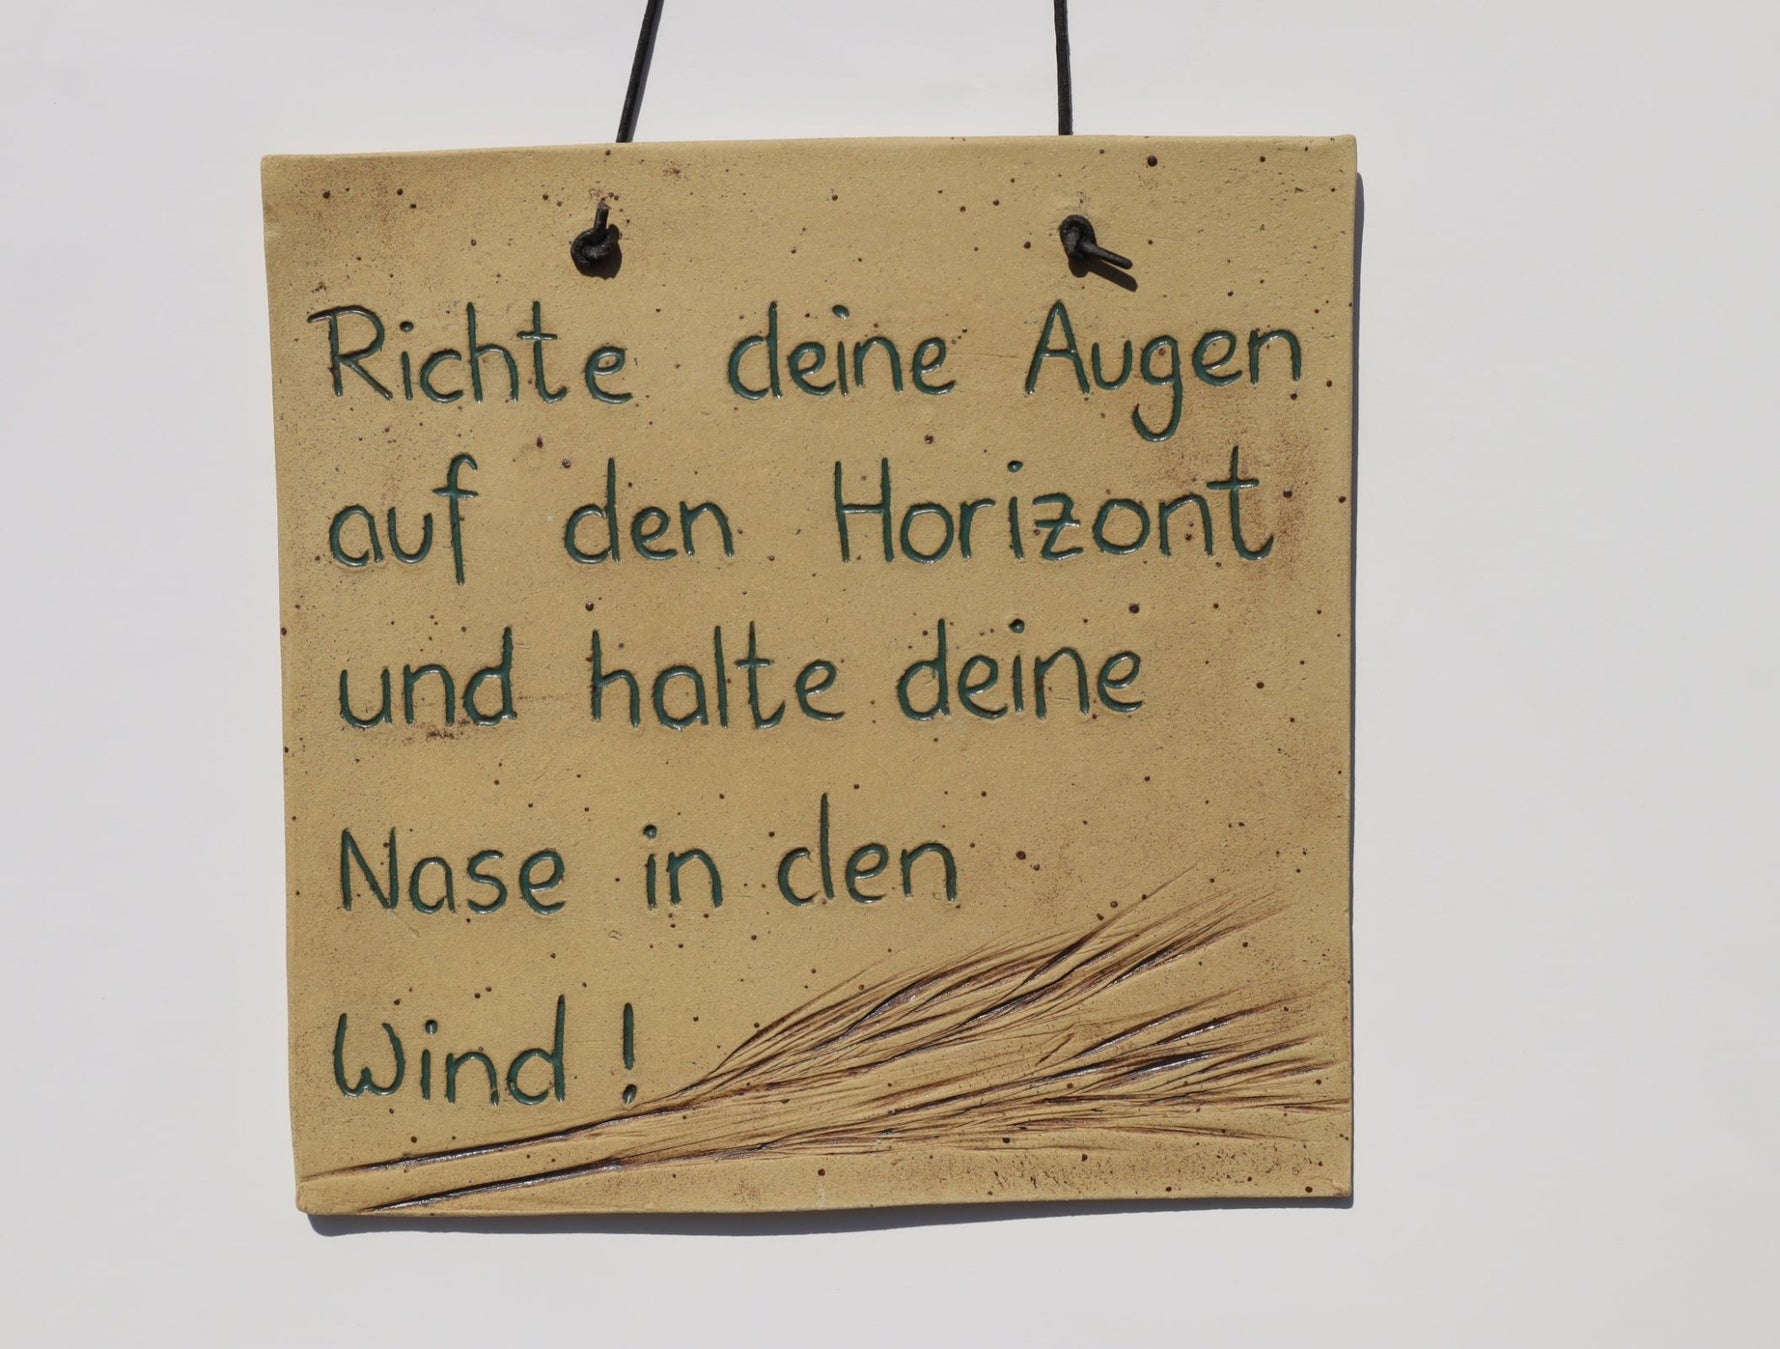 Richte deine Augen
auf den Horizont
und halte deine
Nase in den
Wind !